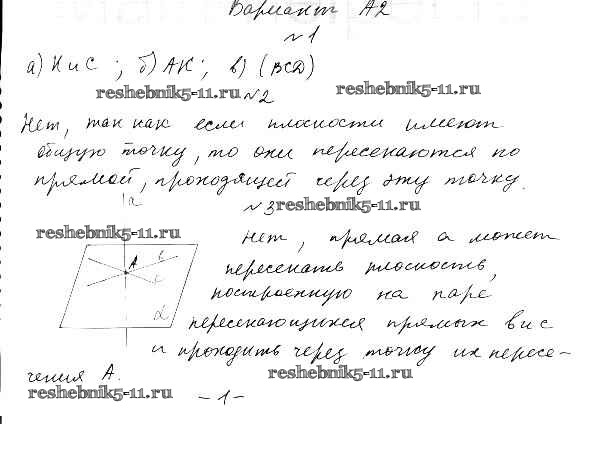 Вариант А2
№1
а) К и С ; б) АК ; в) (ВСD)
reshebnik5-11.ru №2 reshebnik5-11.ru
Нет, так как если плоскости имеют
общую точку, то они пересекаются по
прямой, проходящей через эту точку.
a №3 reshebnik5-11.ru
reshebnik5-11.ru Нет, прямая а может
A в пересекать плоскость,
c построенную на паре
α пересекающихся прямых в и с
и проходить через точку их пересе-
чения А. reshebnik5-11.ru
reshebnik5-11.ru -1-